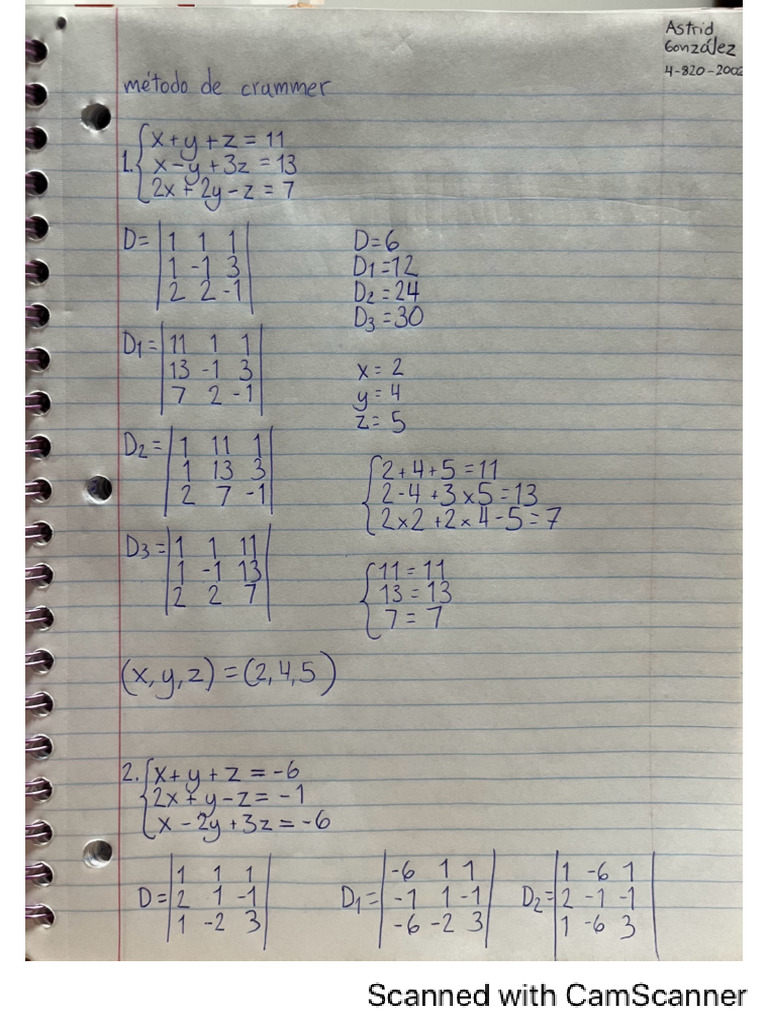 Astrid
González
4-820-2002
método de crammer
1. x+y+z=11
x-y+3z=13
2x+2y-z=7
D= 1 1 1
1 -1 3
2 2 -1
D=6
D1=12
D2=24
D3=30
D1= 11 1 1
13 -1 3
7 2 -1
x=2
y=4
z=5
D2= 1 11 1
1 13 3
2 7 -1
2+4+5=11
2-4+3×5=13
2×2+2×4-5=7
D3= 1 1 11
1 -1 13
2 2 7
11=11
13=13
7=7
(x,y,z)=(2,4,5)
2. x+y+z=-6
2x+y-z=-1
x-2y+3z=-6
D= 1 1 1
2 1 -1
1 -2 3
D1= -6 1 1
-1 1 -1
-6 -2 3
D2= 1 -6 1
2 -1 -1
1 -6 3
Scanned with CamScanner